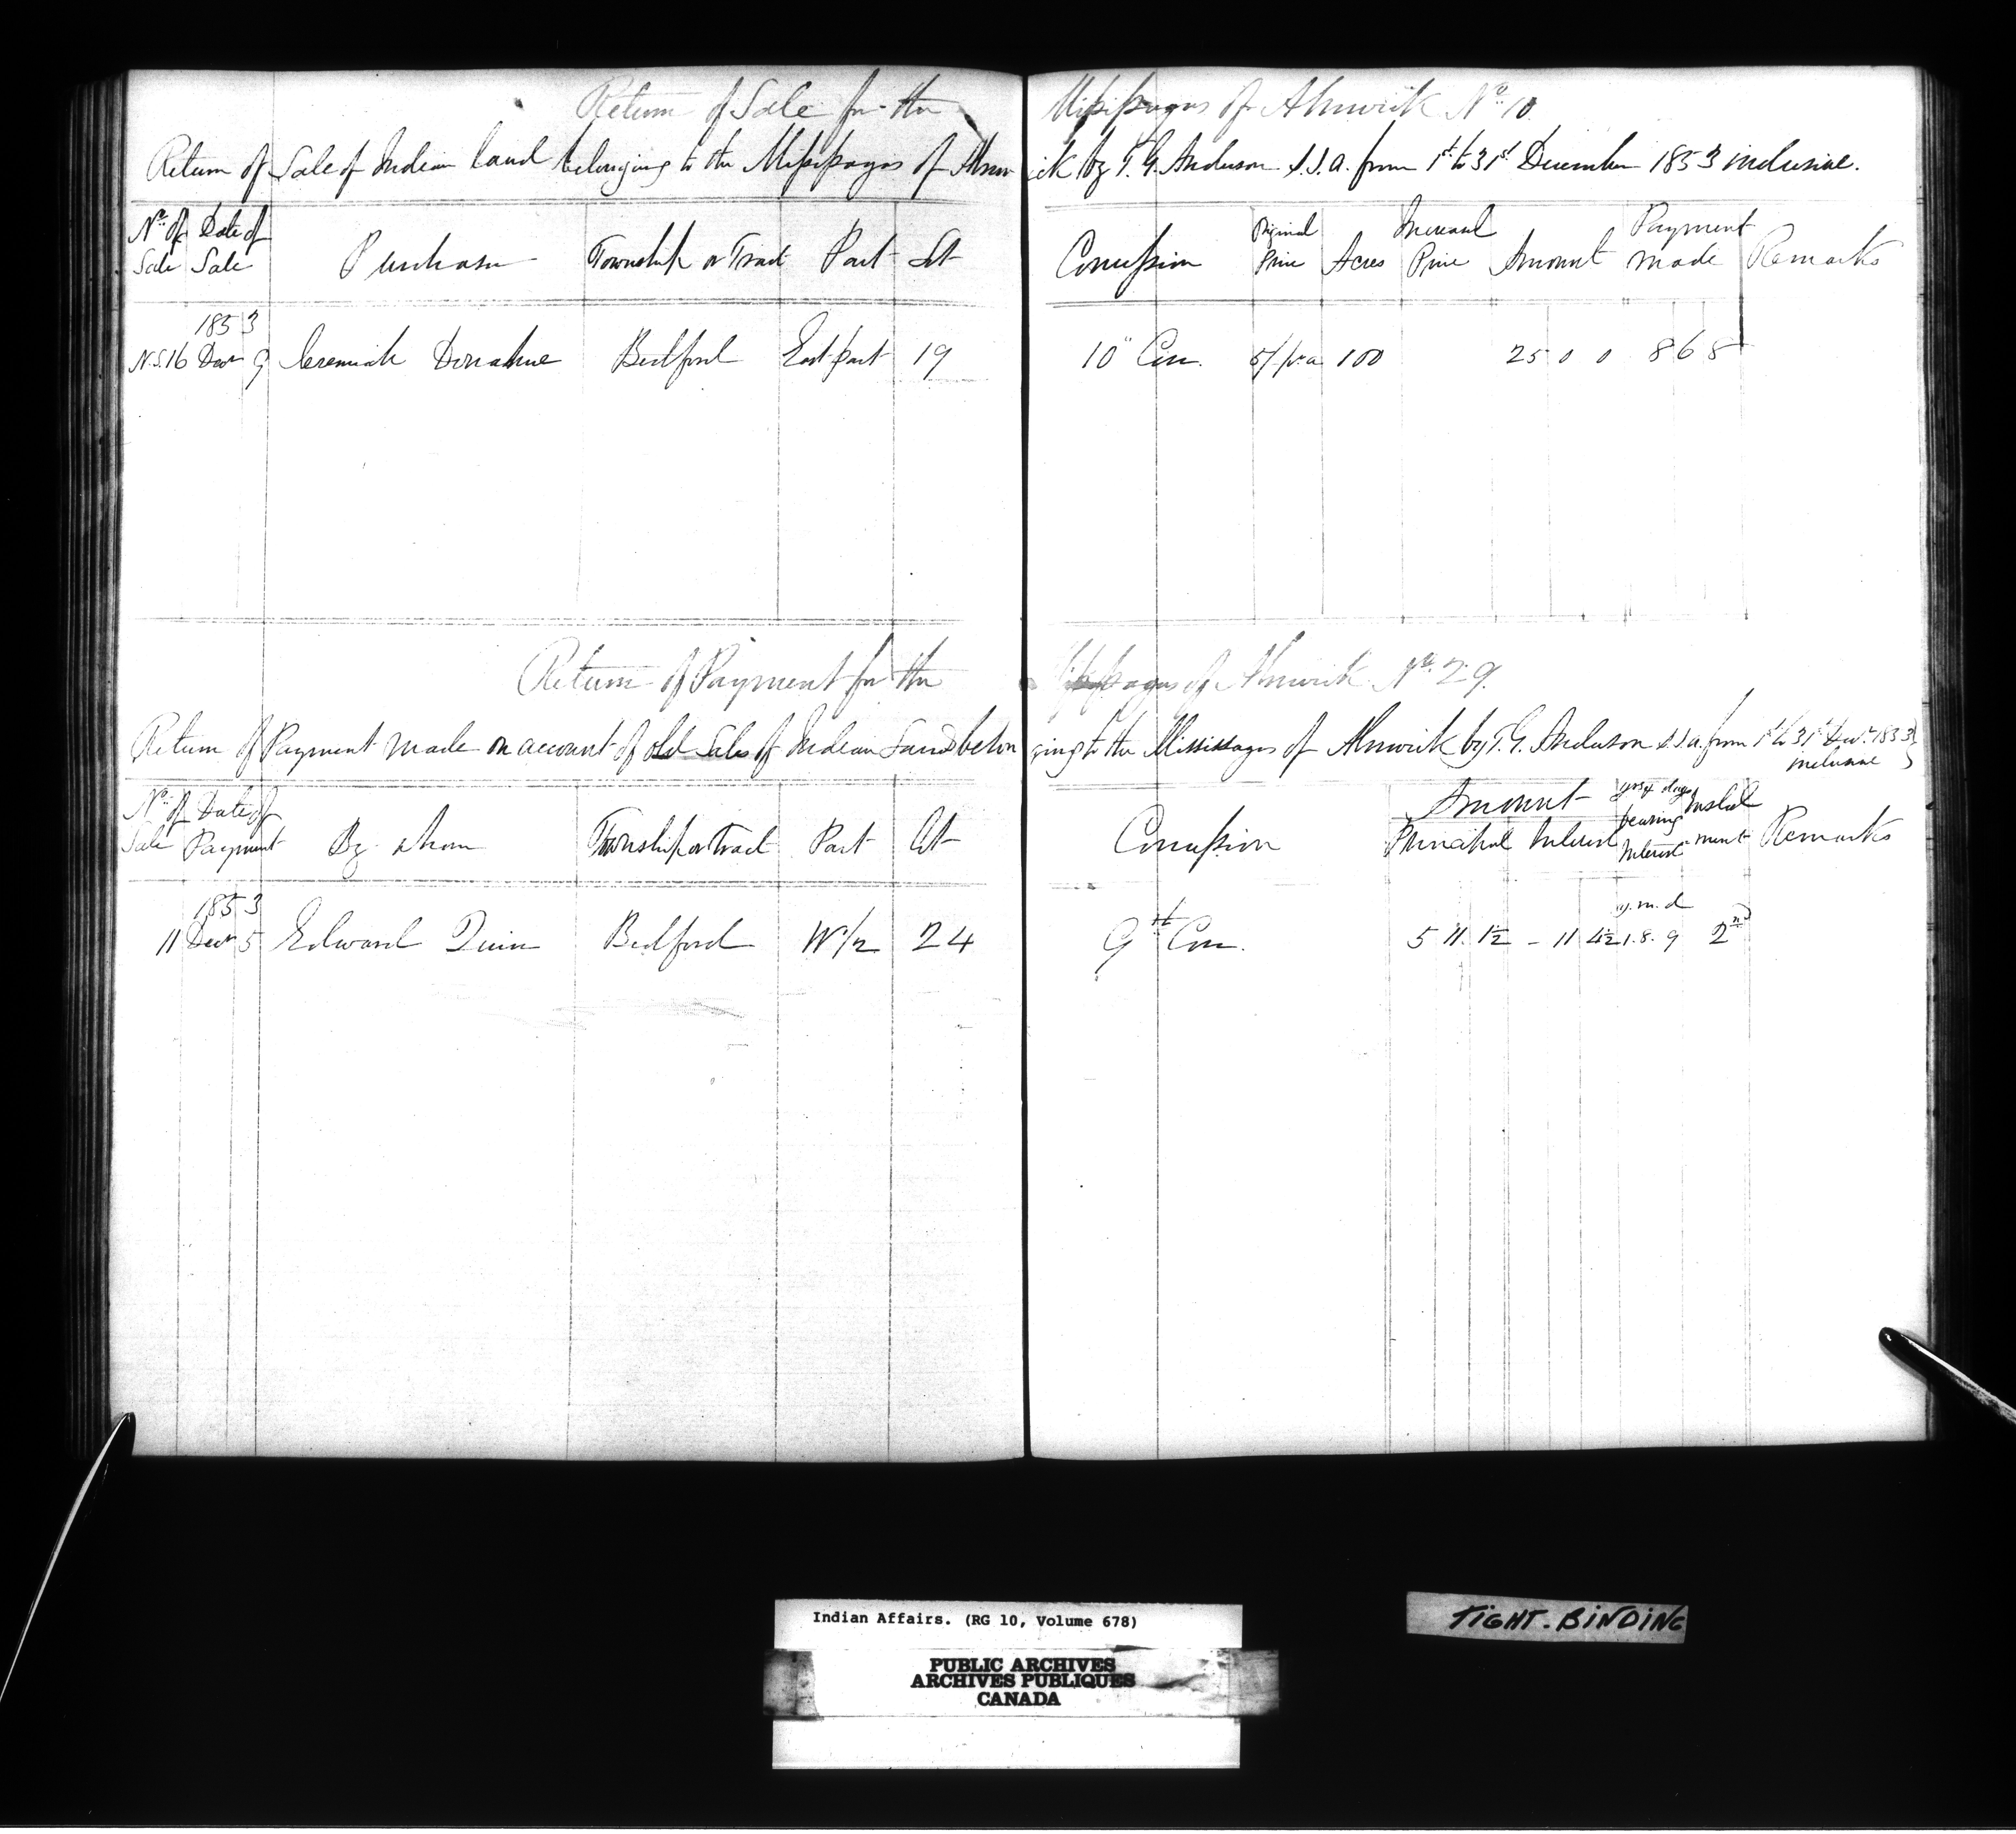 Return of Sale for the Missisagas of Alnwick No. 10
Return of Sale of Indian land belonging to the Missisagas of Alnwick by T. G. Anderson S.I.A. from 1st to 31st December 1853 inclusive.
No. of Sale | Date of Sale | Purchaser | Township or Tract | Part | Lot | Concession | Original Price | Acres | Increased Price | Amount | Payment made | Remarks
1853
N.S. 16 | Decr 9 | Jeremiah Donahue | Bedford | East part | 19 | 10" Con. | 5/ pr a | 100 | 25 0 0 | 8 6 8
Return of Payment for the Missisagas of Alnwick No. 29.
Return of Payment made on account of old Sales of Indian Land belonging to the Mississagas of Alnwick by T. G. Anderson S.I.A. from 1st to 31st Decr. 1853 inclusive
No. of Sale | Date of Payment | By whom | Township or Tract | Part | Lot | Concession | Amount Principal | Interest | yrs & days bearing Interest | Instalment | Remarks
1853 | y. m. d
11 | Decr 5 | Edward Quin | Bedford | W 1/2 | 24 | 9th Con. | 5 11 1½ | - 11 4½ | 1. 8. 9 | 2nd
Indian Affairs. (RG 10, Volume 678)
PUBLIC ARCHIVES
ARCHIVES PUBLIQUES
CANADA
TIGHT. BINDING